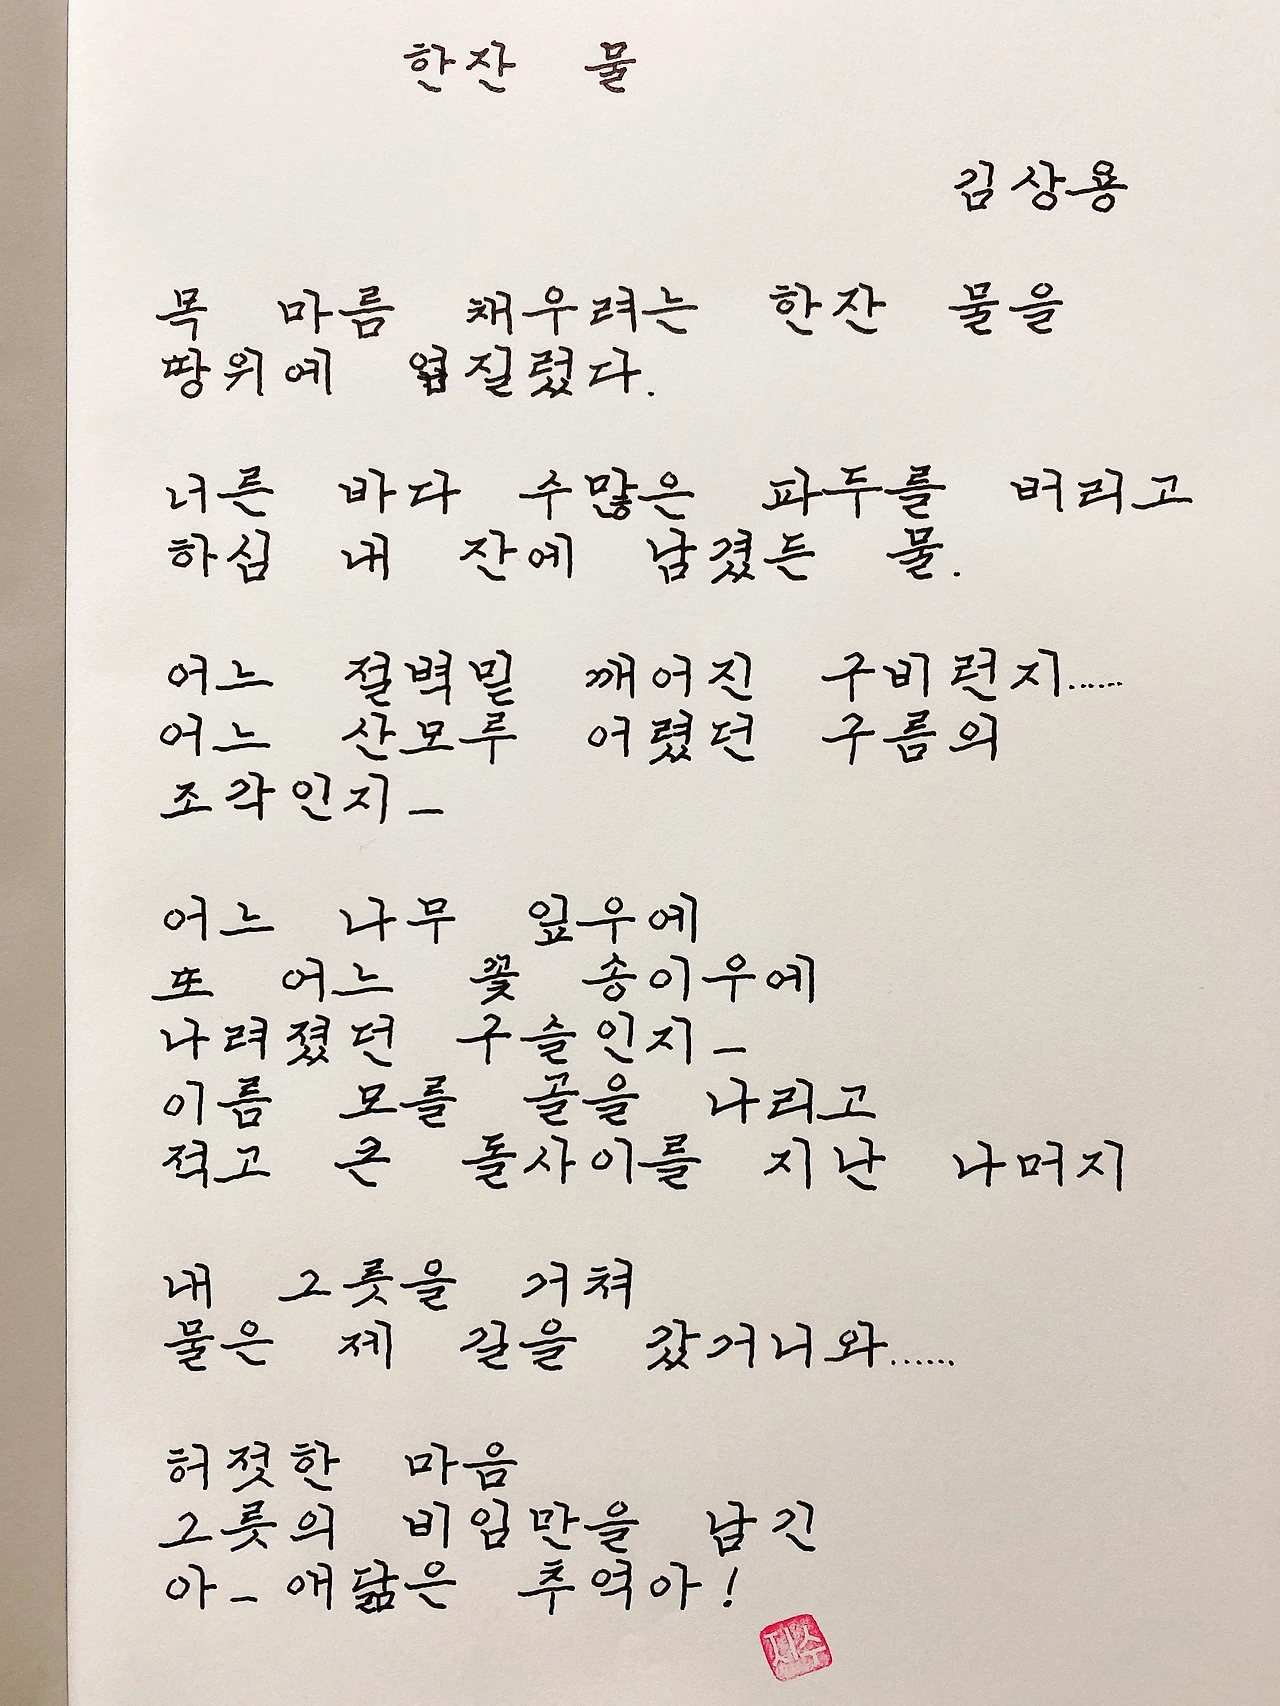 한잔 물
김상용
목 마름 채우려는 한잔 물을
땅위에 엎질렀다.
너른 바다 수많은 파두를 버리고
하심 내 잔에 남겼든 물.
어느 절벽밑 깨어진 구비런지......
어느 산모루 어렸던 구름의
조각인지_
어느 나무 잎우에
또 어느 꽃 송이우에
나려졌던 구슬인지_
이름 모를 골을 나리고
적고 큰 돌사이를 지난 나머지
내 그릇을 거쳐
물은 제 길을 갔거니와......
허젓한 마음
그릇의 비임만을 남긴
아_애닲은 추억아!
재수